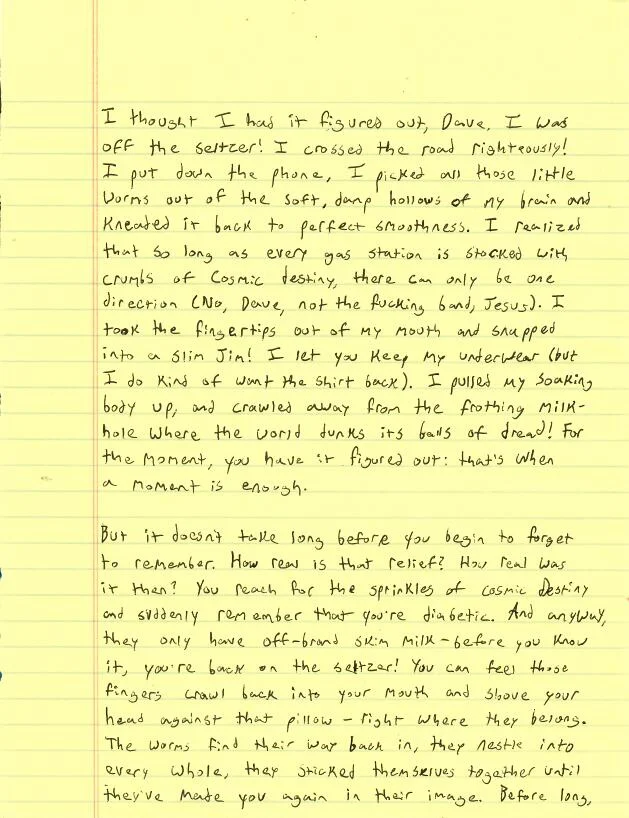 I thought I had it figured out, Dave. I was
off the seltzer! I crossed the road righteously!
I put down the phone, I picked all those little
worms out of the soft, damp hollows of my brain and
kneaded it back to perfect smoothness. I realized
that so long as every gas station is stocked with
crumbs of cosmic destiny, there can only be one
direction (No, Dave, not the fucking band, Jesus). I
took the fingertips out of my mouth and snapped
into a Slim Jim! I let you keep my underwear (but
I do kind of want the shirt back). I pulled my soaking
body up, and crawled away from the frothing milk-
hole where the world dunks its balls of dread! For
the moment, you have it figured out: that's when
a moment is enough.

But it doesn't take long before you begin to forget
to remember. How real is that relief? How real was
it then? You reach for the sprinkles of cosmic destiny
and suddenly remember that you're diabetic. And anyway,
they only have off-brand skim milk - before you know
it, you're back on the seltzer! You can feel those
fingers crawl back into your mouth and shove your
head against that pillow - right where they belong.
The worms find their way back in, they nestle into
every whole, they sticked themselves together until
they've made you again in their image. Before long,